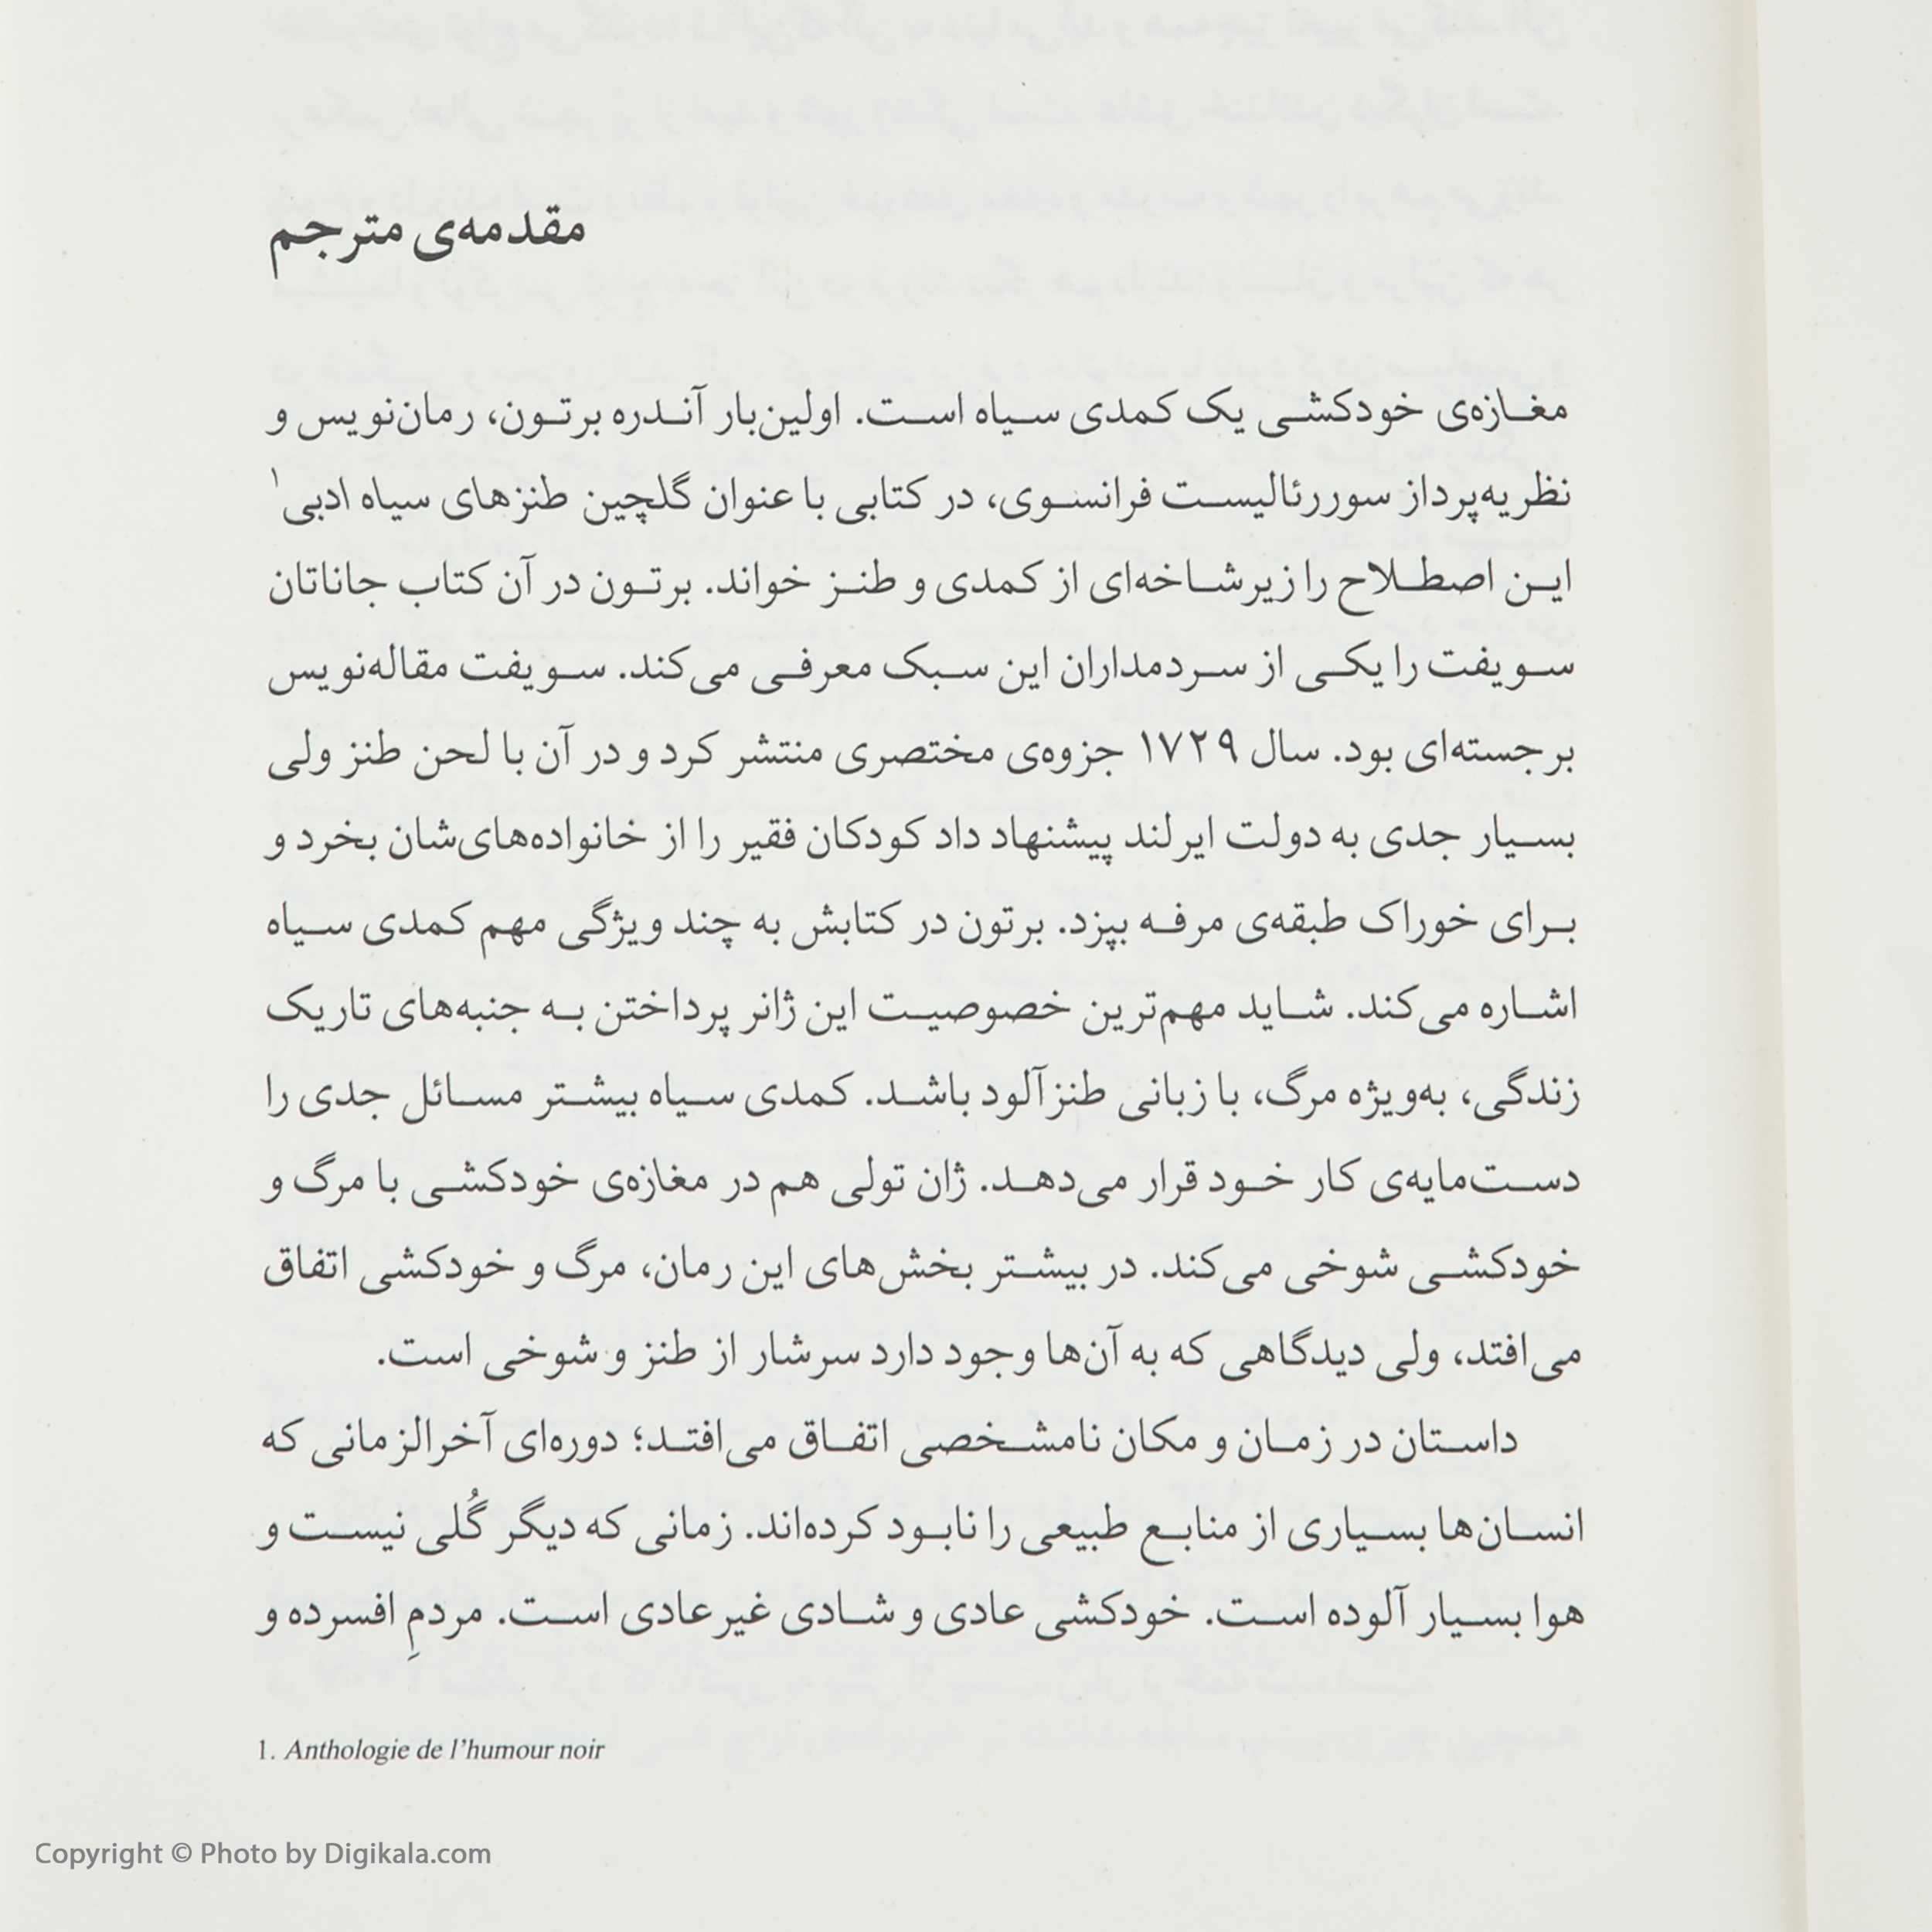 مقدمه‌ی مترجم
مغازه‌ی خودکشی یک کمدی سیاه است. اولین‌بار آندره برتون، رمان‌نویس و
نظریه‌پرداز سوررئالیست فرانسوی، در کتابی با عنوان گلچین طنزهای سیاه ادبی۱
این اصطلاح را زیرشاخه‌ای از کمدی و طنز خواند. برتون در آن کتاب جاناتان
سویفت را یکی از سردمداران این سبک معرفی می‌کند. سویفت مقاله‌نویس
برجسته‌ای بود. سال ۱۷۲۹ جزوه‌ی مختصری منتشر کرد و در آن با لحن طنز ولی
بسیار جدی به دولت ایرلند پیشنهاد داد کودکان فقیر را از خانواده‌های‌شان بخرد و
برای خوراک طبقه‌ی مرفه بپزد. برتون در کتابش به چند ویژگی مهم کمدی سیاه
اشاره می‌کند. شاید مهم‌ترین خصوصیت این ژانر پرداختن به جنبه‌های تاریک
زندگی، به‌ویژه مرگ، با زبانی طنزآلود باشد. کمدی سیاه بیشتر مسائل جدی را
دست‌مایه‌ی کار خود قرار می‌دهد. ژان تولی هم در مغازه‌ی خودکشی با مرگ و
خودکشی شوخی می‌کند. در بیشتر بخش‌های این رمان، مرگ و خودکشی اتفاق
می‌افتد، ولی دیدگاهی که به آن‌ها وجود دارد سرشار از طنز و شوخی است.
داستان در زمان و مکان نامشخصی اتفاق می‌افتد؛ دوره‌ای آخرالزمانی که
انسان‌ها بسیاری از منابع طبیعی را نابود کرده‌اند. زمانی که دیگر گُلی نیست و
هوا بسیار آلوده است. خودکشی عادی و شادی غیرعادی است. مردمِ افسرده و
1. Anthologie de l’humour noir
Copyright © Photo by Digikala.com